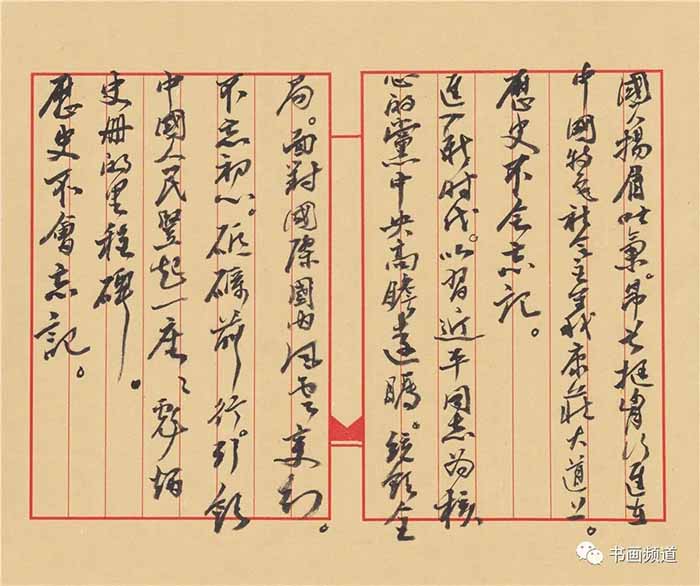 國人揚眉吐氣。昂首挺胸行進在
中國特色社会主義康莊大道上。
歷史不会忘记。
進入新时代。以習近平同志为核
心的黨中央高瞻遠矚。统领全
局。面對國際國内风云变幻。
不忘初心。砥礪前行。引領
中國人民豎起一座々彪炳
史册的里程碑。
歷史不會忘記。
书画频道